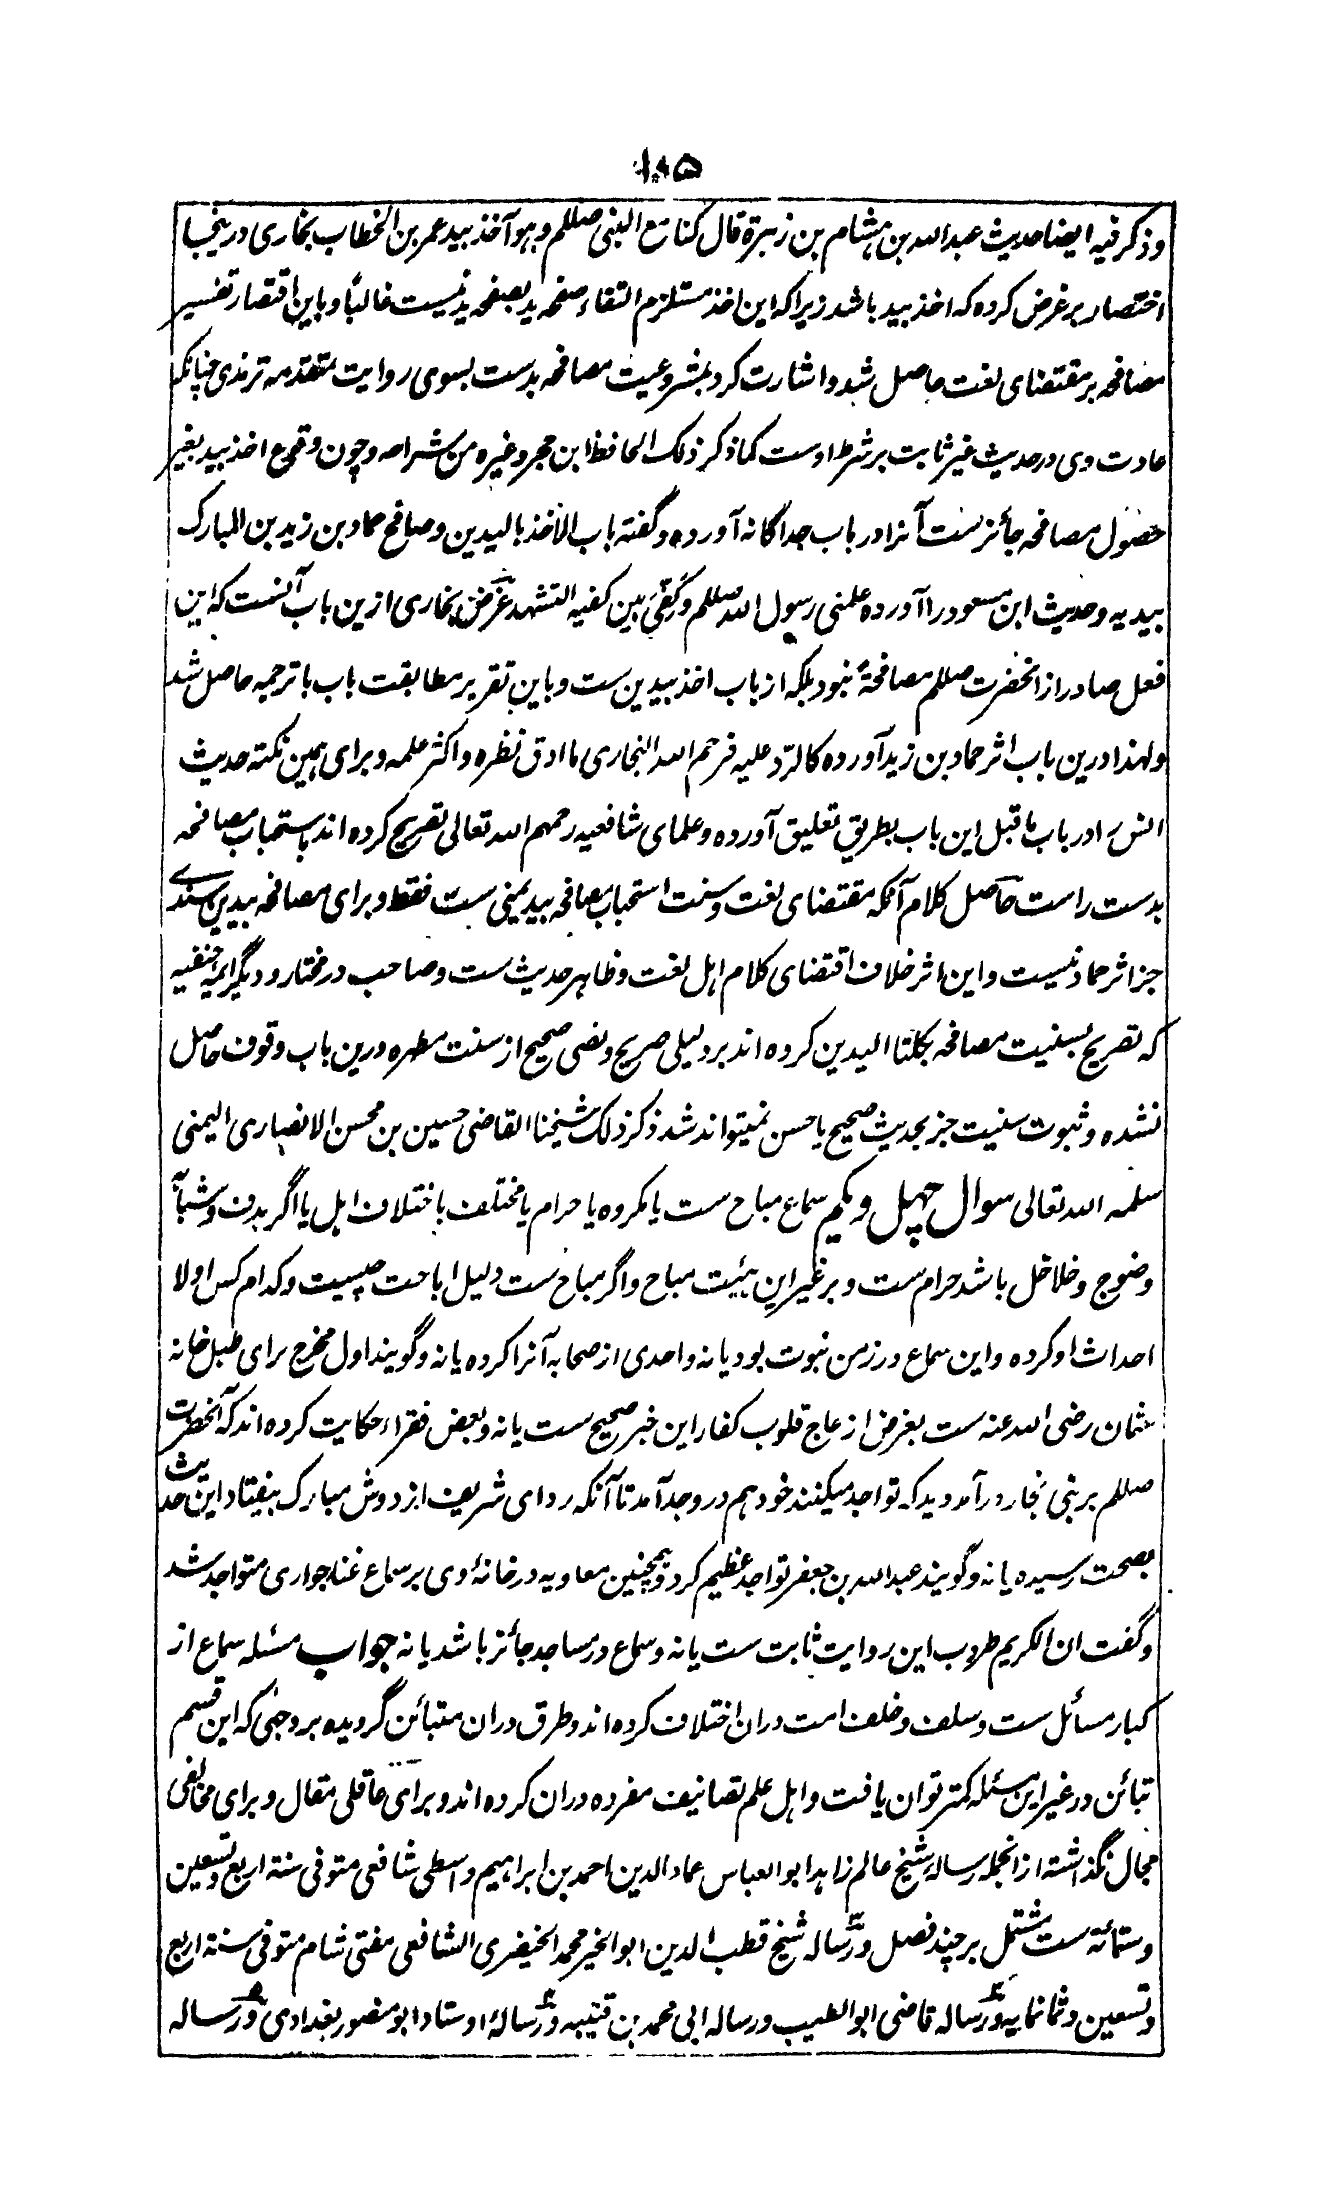 ۱۰۵
وذكر فيه ايضا حديث عبدالله بن هشام بن زهرة قال كنا مع النبى صللم وهو آخذ بيد عمر بن الخطاب بخارى درينجا
اختصار بر غرض كرده كه اخذ بيد باشد زيراكه اين اخذ مستلزم التقاء صفحه يد بصفحه يد نيست غالباً و باين اقتصار تفسير
مصافحه بر مقتضاى لغت حاصل شد و اشارت كرد بمشروعيت مصافحه بدست بسوى روايت متقدمه ترمذى چنانكه
عادت وى در حديث غير ثابت بر شرط اوست كما ذكر ذلك الحافظ ابن حجر وغيره من شراحه و چون وقوع اخذ بيد بغير
حصول مصافحه جائز ست آنرا در باب جداگانه آورده و گفته باب الاخذ باليدين وصافح حماد بن زيد بن المبارك
بيديه و حديث ابن مسعود را آورده علمنى رسول الله صللم وكفى بين كفيه التشهد غرض بخارى ازين باب آنست كه اين
فعل صادر از آنحضرت صللم مصافحۀ نبود بلكه از باب اخذ بيدين ست و باين تقرير مطابقت باب با ترجمه حاصل شد
ولهذا درين باب اثر حماد بن زيد آورده كالرد عليه فرحم الله البخارى ما ادق نظره و اكثر علمه و براى همين نكته حديث
انس را در باب ما قبل اين باب بطريق تعليق آورده و علماى شافعيه رحمهم الله تعالى تصريح كرده اند باستحباب مصافحه
بدست راست حاصل كلام آنكه مقتضاى لغت و سنت استحباب مصافحه بيد يمنى ست فقط و براى مصافحه بيدين سندے
جز اثر حماد نيست و اين اثر خلاف اقتضاى كلام اهل لغت و ظاهر حديث ست و صاحب درمختار و ديگر ائمۀ حنفيه
كه تصريح بسنيت مصافحه بكلتا اليدين كرده اند بر دليلى صريح و نصى صحيح از سنت مطهره درين باب وقوف حاصل
نشده و ثبوت سنيت جز بحديث صحيح يا حسن نميتواند شد ذكر ذلك شيخنا القاضى حسين بن محسن الانصارى اليمنى
سلمه الله تعالى سوال چهل و يكم سماع مباح ست يا مكروه يا حرام يا مختلف باختلاف اهل يا اگر بدف و شبابه
وضوج و خلاخل باشد حرام ست و بر غير اين هيئت مباح و اگر مباح ست دليل اباحت چيست و كدام كس اولا
احداث او كرده و اين سماع در زمن نبوت بود يا نه واحدى از صحابه آنرا كرده يا نه و گويند اول مخرج براى طبل خانه
عثمان رضى الله عنه ست بغرض ازعاج قلوب كفار اين خبر صحيح ست يا نه و بعض فقراء حكايت كرده اند كه آنحضرت
صللم بر بنى نجار درآمد ديد كه تواجد ميكنند خود هم در وجد آمد تا آنكه رداى شريف از دوش مبارك بيفتاد اين حديث
بصحت رسيده يا نه و گويند عبدالله بن جعفر تواجد عظيم كرد و همچنين معاويه در خانۀ وى بر سماع غناء جوارى متواجد شد
و گفت ان الكريم طروب اين روايت ثابت ست يا نه و سماع در مساجد جائز باشد يا نه جواب مسئله سماع از
كبار مسائل ست و سلف و خلف امت دران اختلاف كرده اند و طرق دران متبائن گرديده بر وجهى كه اين قسم
تبائن در غير اين مسئله كمتر توان يافت و اهل علم تصانيف مفرده دران كرده اند و براى عاقلى مقال و براى مخالفى
مجال نگذاشته ازانجمله رساله شيخ عالم زاهد ابوالعباس عماد الدين احمد بن ابراهيم واسطى شافعى متوفى سنة اربع وتسعين
وستمائة ست مشتمل بر چند فصل و رساله شيخ قطب الدين ابوالخير محمد الخيضرى الشافعى مفتى شام متوفى سنة اربع
وتسعين وثمانمايه و رساله قاضى ابوالطيب و رساله ابى محمد بن قتيبه و رسالۀ اوستاد ابومنصور بغدادى و رساله